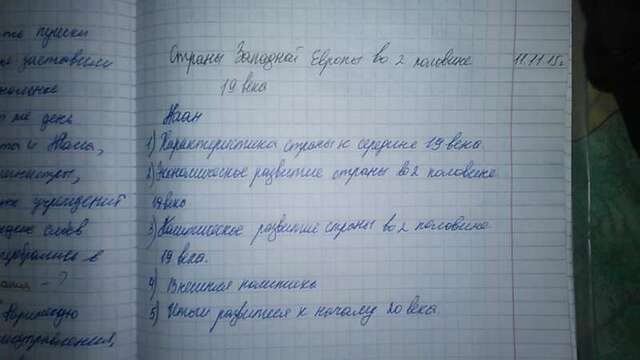 те пушки
заставили
та и Жала,
министры,
учреждений
Страны Западной Европы во 2 половине 11.11.15г
19 века
План
1) Характеристика страны к середине 19 века.
2) Экономическое развитие страны во 2 половине
19 века
3) Политическое развитие страны во 2 половине
19 века.
4) Внешняя политика
5) Итоги развития к началу 20 века.